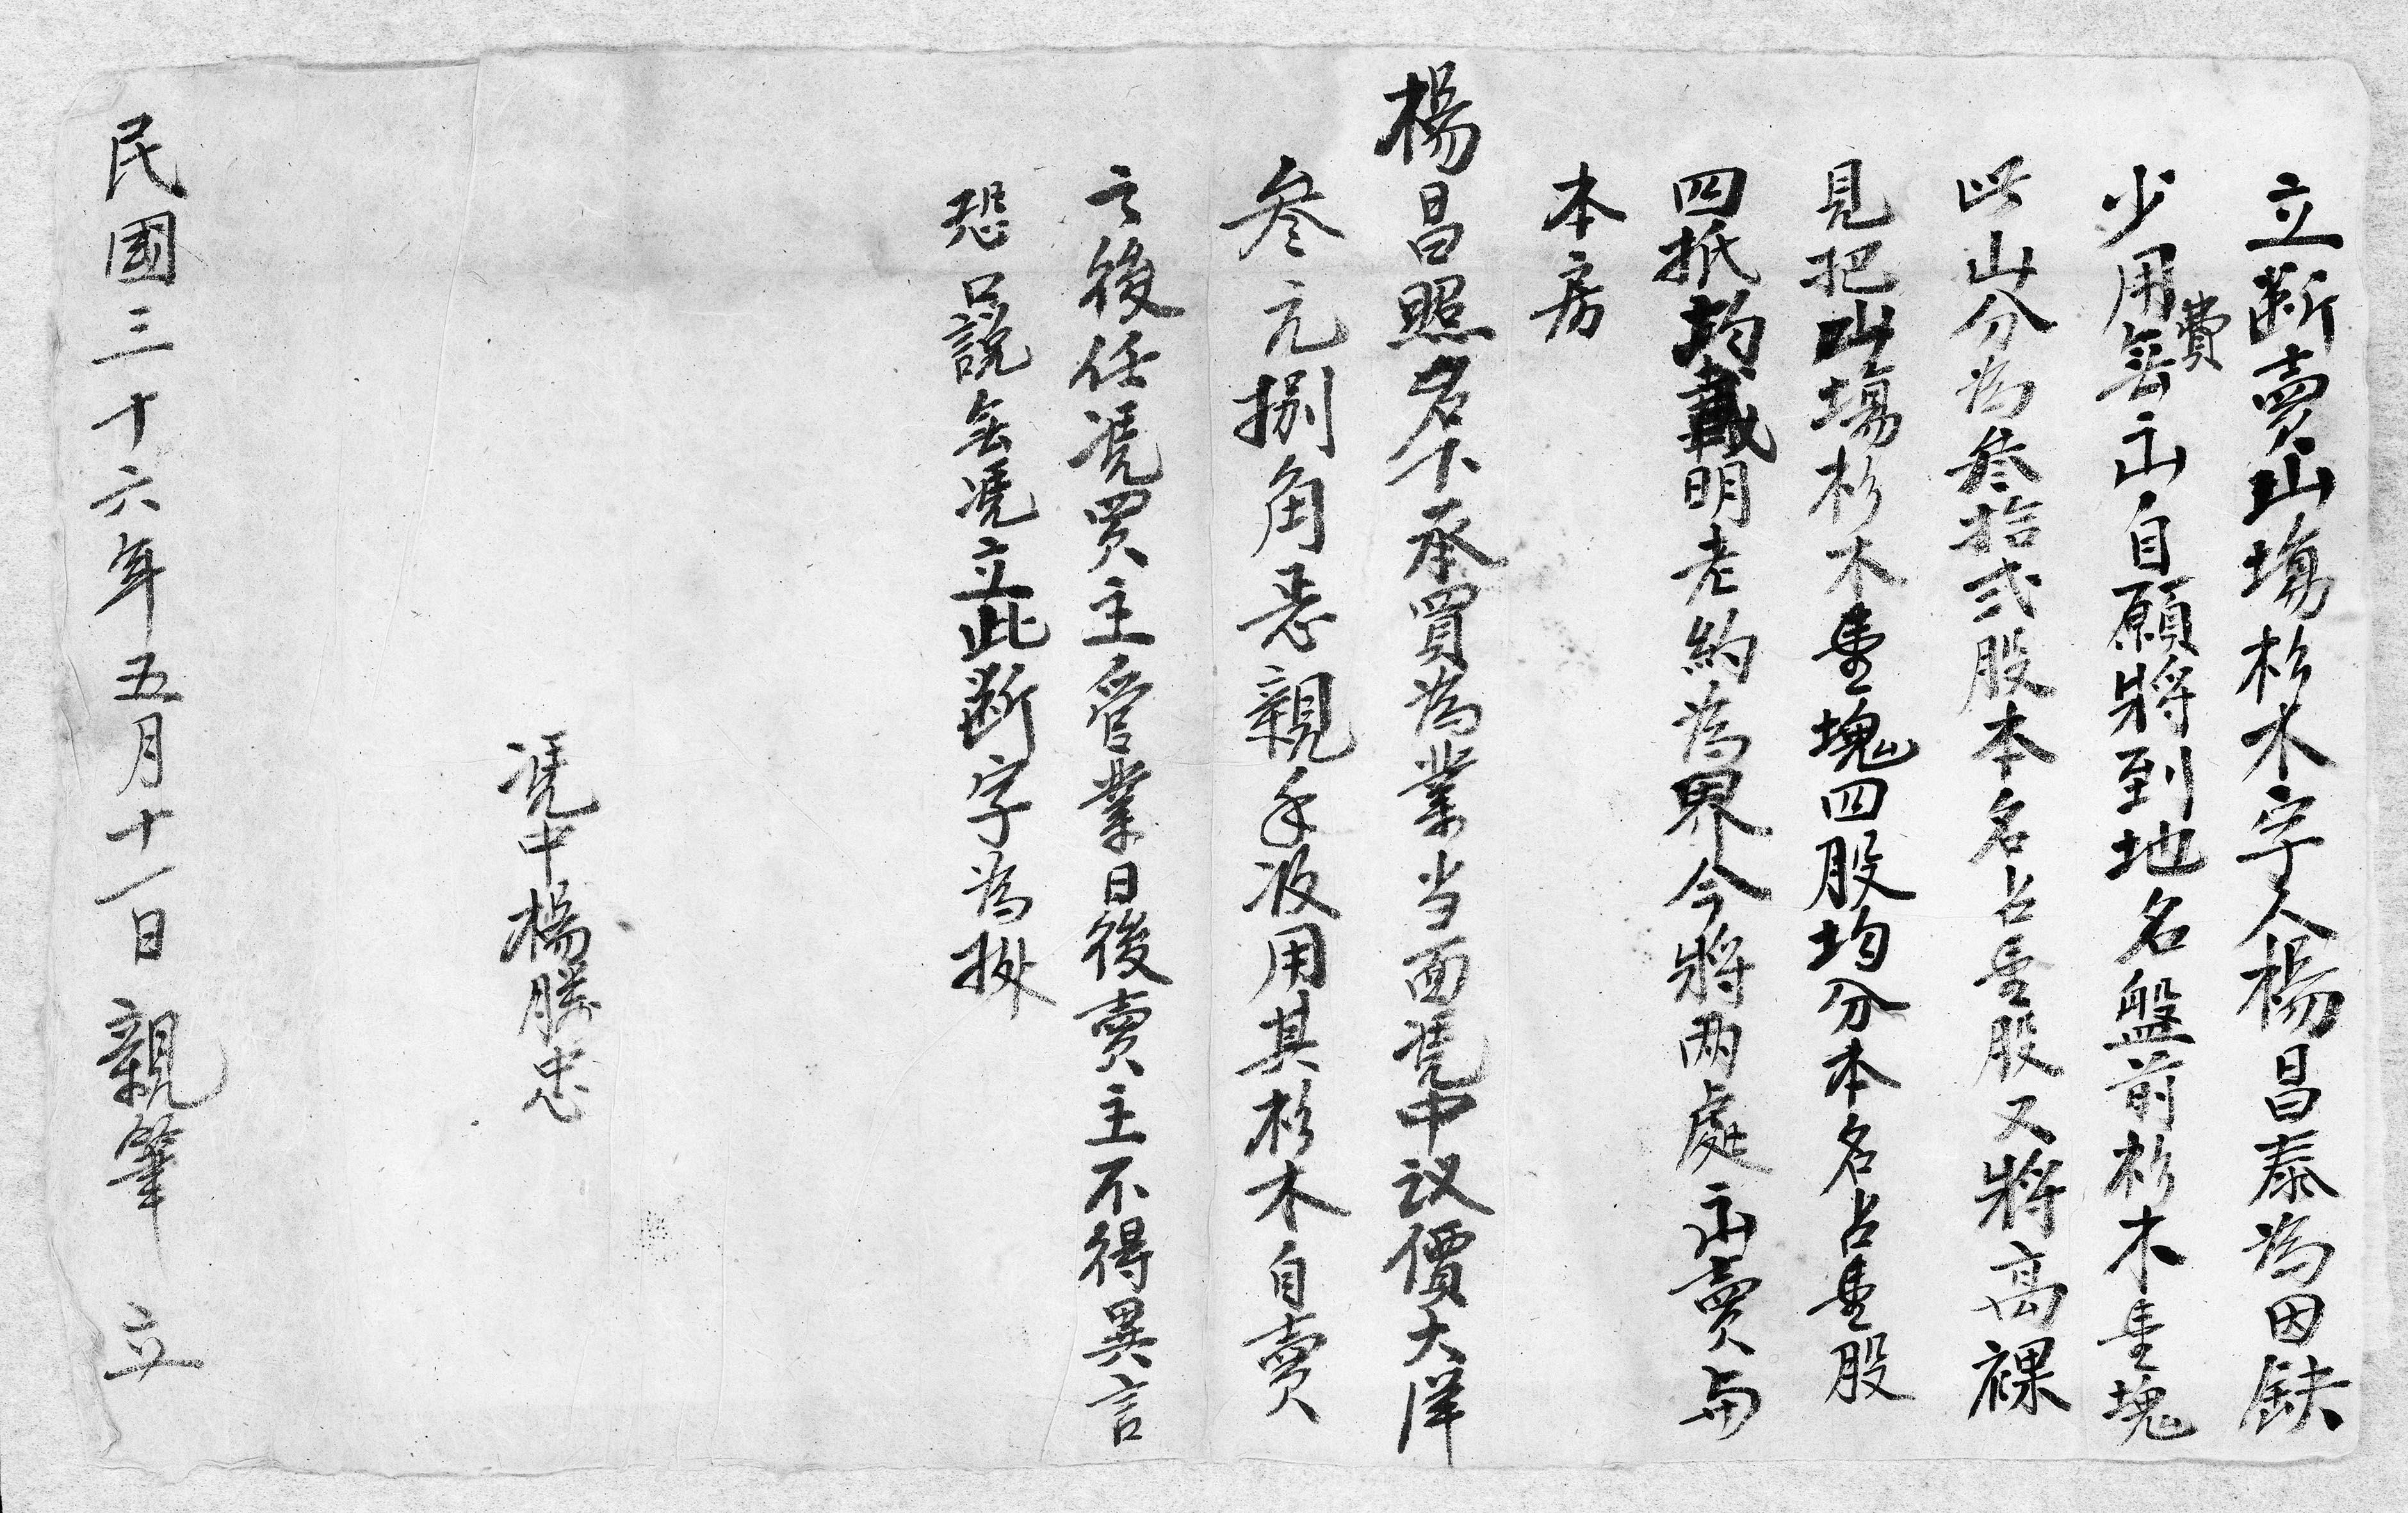 立断賣山塲杉木字人楊昌泰為因缺
少用費無出自願將到地名盤前杉木壹塊
此山分為叁拾弍股本名占壹股又將高裸
見把山塲杉木壹塊山四股均分本名占壹股
四抵均載明老約為界今將兩處出賣与
本房
楊昌照名下承買為業当面凴中议價大洋
叁元捌角悉親手收用其杉木自賣
之後任凴買主管業日後賣主不得異言
恐口說無凴立此断字為據
凴中楊勝忠
民國三十六年五月十一日親筆立